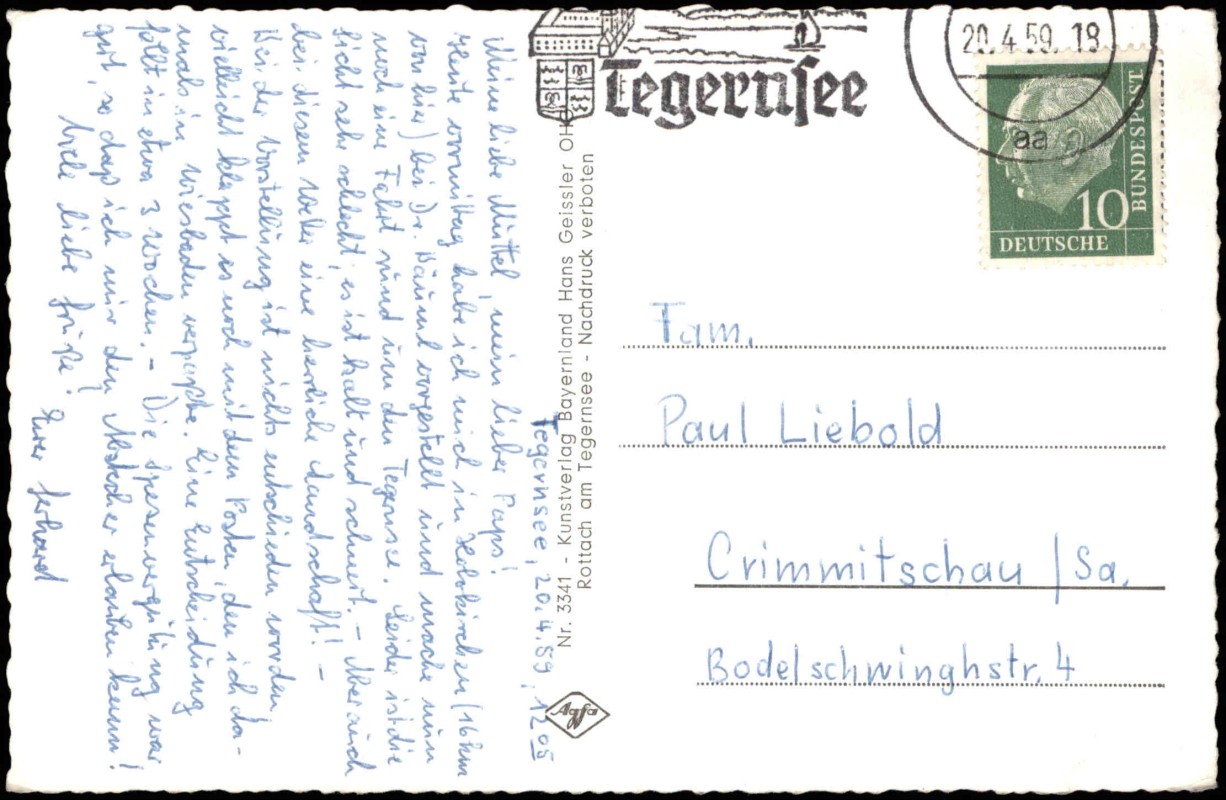 Tegernsee, 20.4.59, 12 05
Meine liebe Muttel, mein lieber Paps!
Heute vormittag habe ich mich in Holzkirchen (16 km
von hier) bei Dr. Bäuml vorgestellt und mache nun
noch eine Fahrt rund um den Tegernsee. Leider ist die
Sicht sehr schlecht, es ist kalt und schneit. – Aber auch
bei diesem Wetter eine herrliche Landschaft! –
Bei der Vorstellung ist nichts entschieden worden,
vielleicht klappt es noch mit dem Posten, den ich da-
mals in Wiesbaden verpaßte. Eine Entscheidung
fällt in etwa 3 Wochen. – Die Spesenvergütung war
gut, so daß ich mir den Abstecher erlauben kann!
Viele liebe Grüße!
Euer Gerhard
Nr. 3341 - Kunstverlag Bayernland Hans Geissler OHG
Rottach am Tegernsee - Nachdruck verboten
Agfa
Tegernsee
20.4.59.18
aa
10
DEUTSCHE
BUNDESPOST
Fam.
Paul Liebold
Crimmitschau/Sa.
Bodelschwinghstr. 4